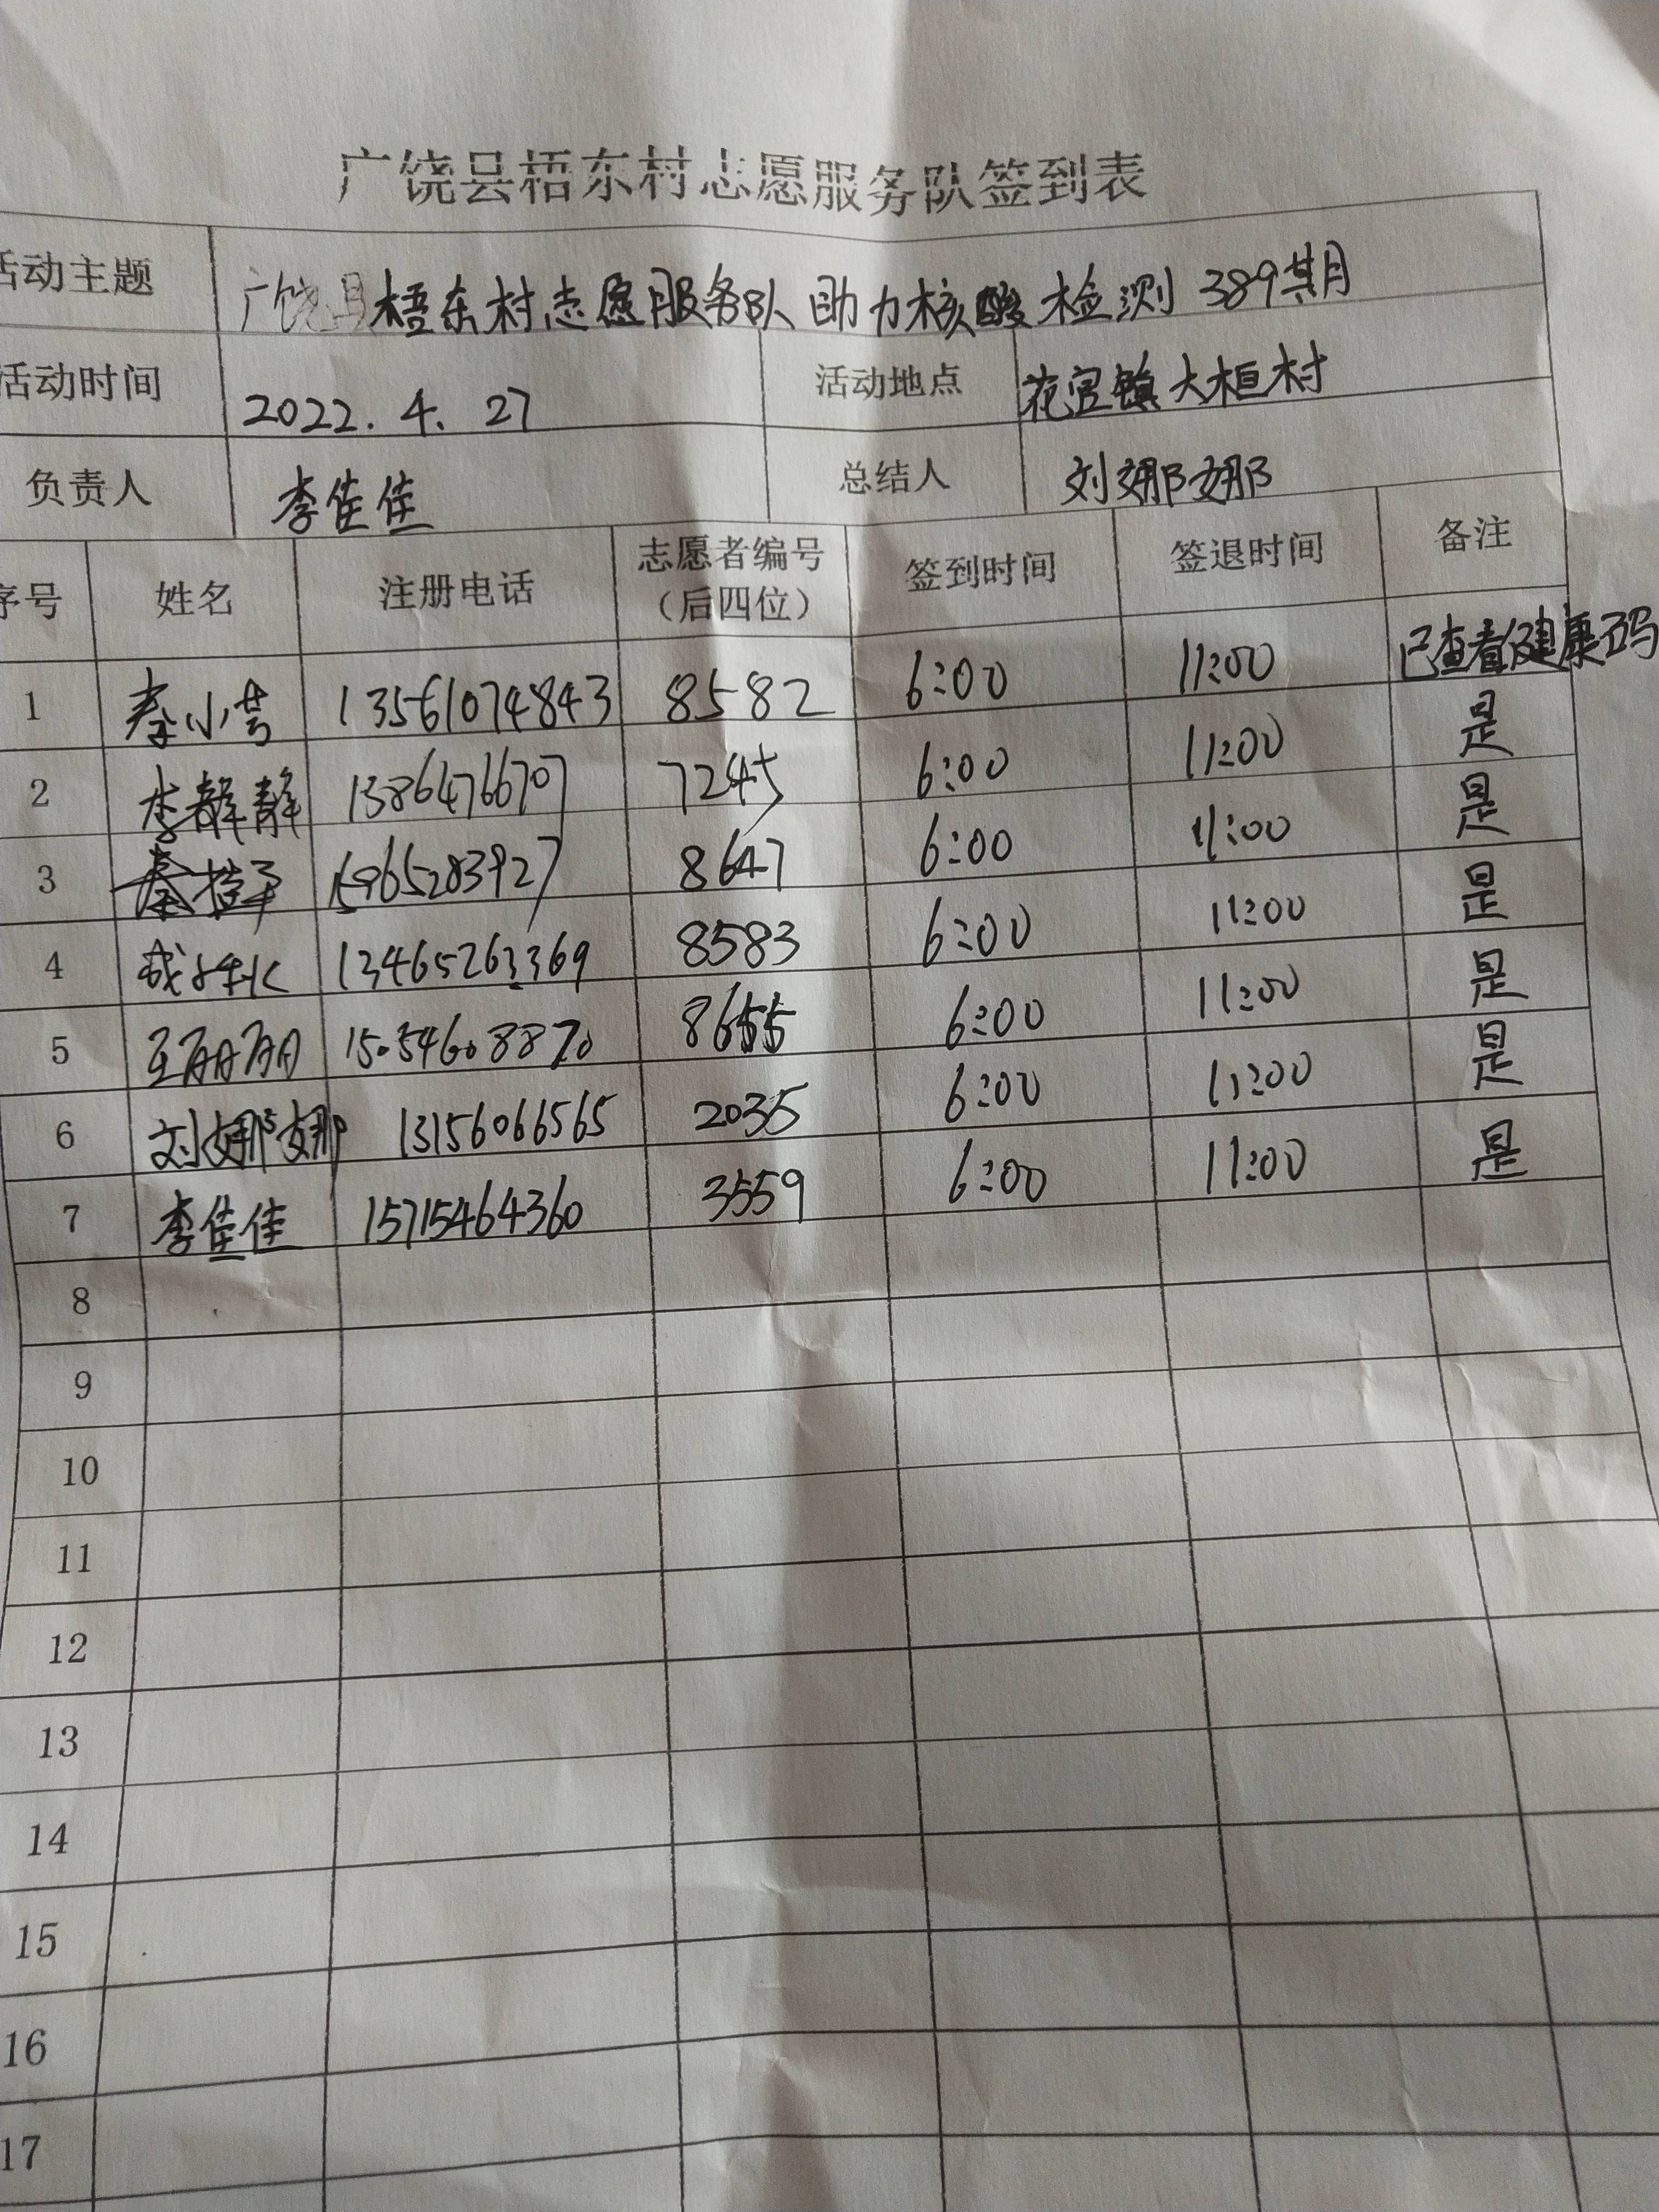 广饶县梧东村志愿服务队签到表
活动主题 广饶县梧东村志愿服务队助力核酸检测389期
活动时间 2022.4.27 活动地点 花官镇大桓村
负责人 李佳佳 总结人 刘娜娜
序号 姓名 注册电话 志愿者编号（后四位） 签到时间 签退时间 备注
1 秦小芸 13561074843 8582 6:00 11:00 已查看健康码
2 李静静 13864766707 7245 6:00 11:00 是
3 秦 15965283927 8647 6:00 11:00 是
4 13465263369 8583 6:00 11:00 是
5 王丽丽 15054608870 8655 6:00 11:00 是
6 刘娜娜 13156066565 2035 6:00 11:00 是
7 李佳佳 15715464360 3559 6:00 11:00 是
8
9
10
11
12
13
14
15
16
17